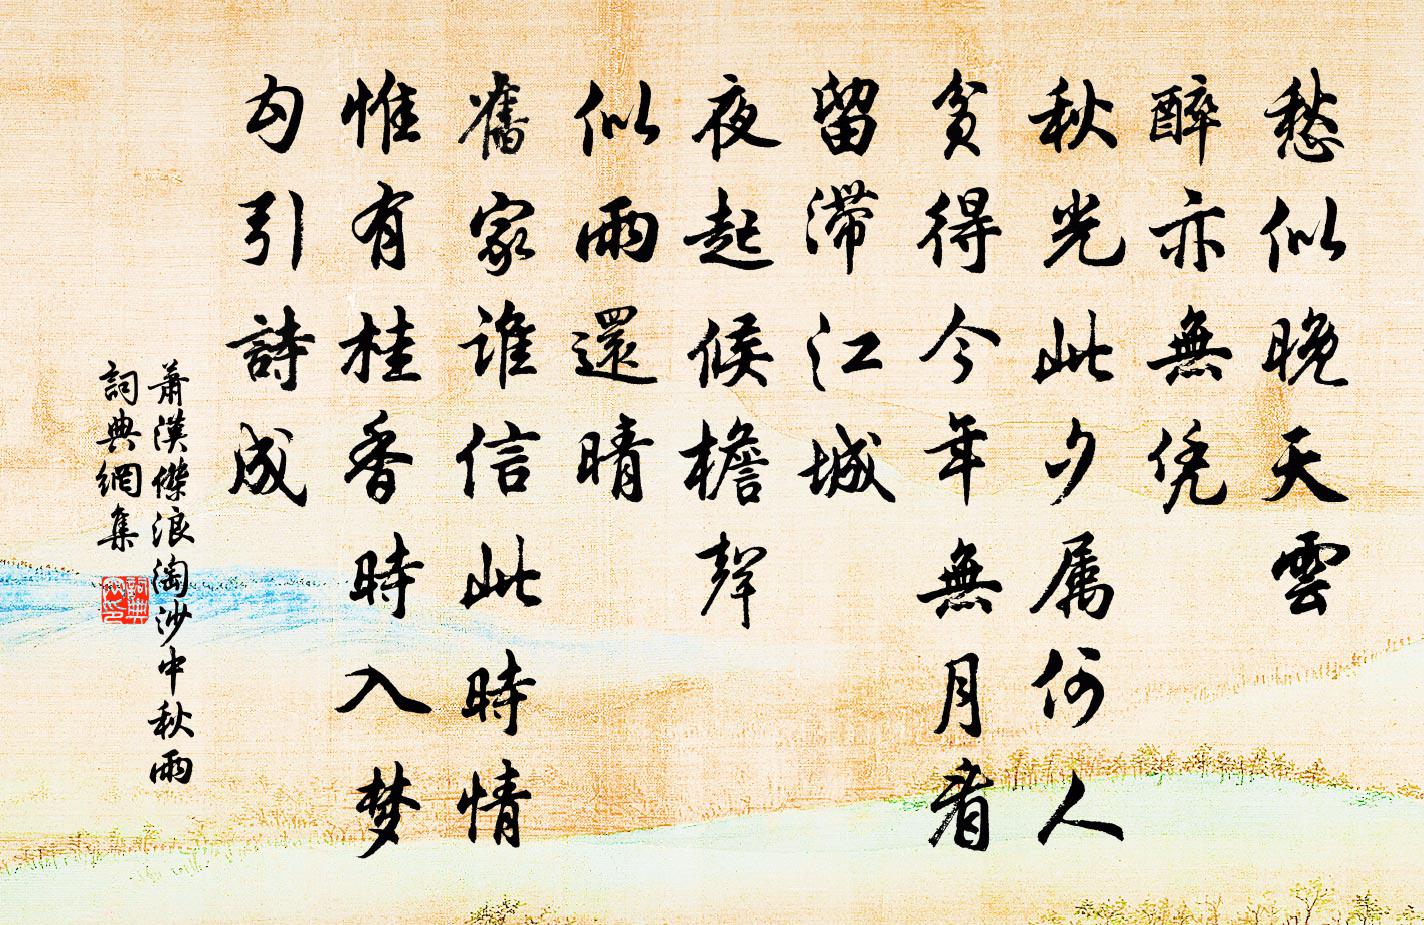 愁似晚天雲
醉亦無凭
秋光此夕属何人
貧得今年無月看
留滯江城
夜起候檐聲
似雨還晴
舊家誰信此時情
惟有桂香時入梦
勾引詩成
萧漢傑浪淘沙中秋雨
詞典網集